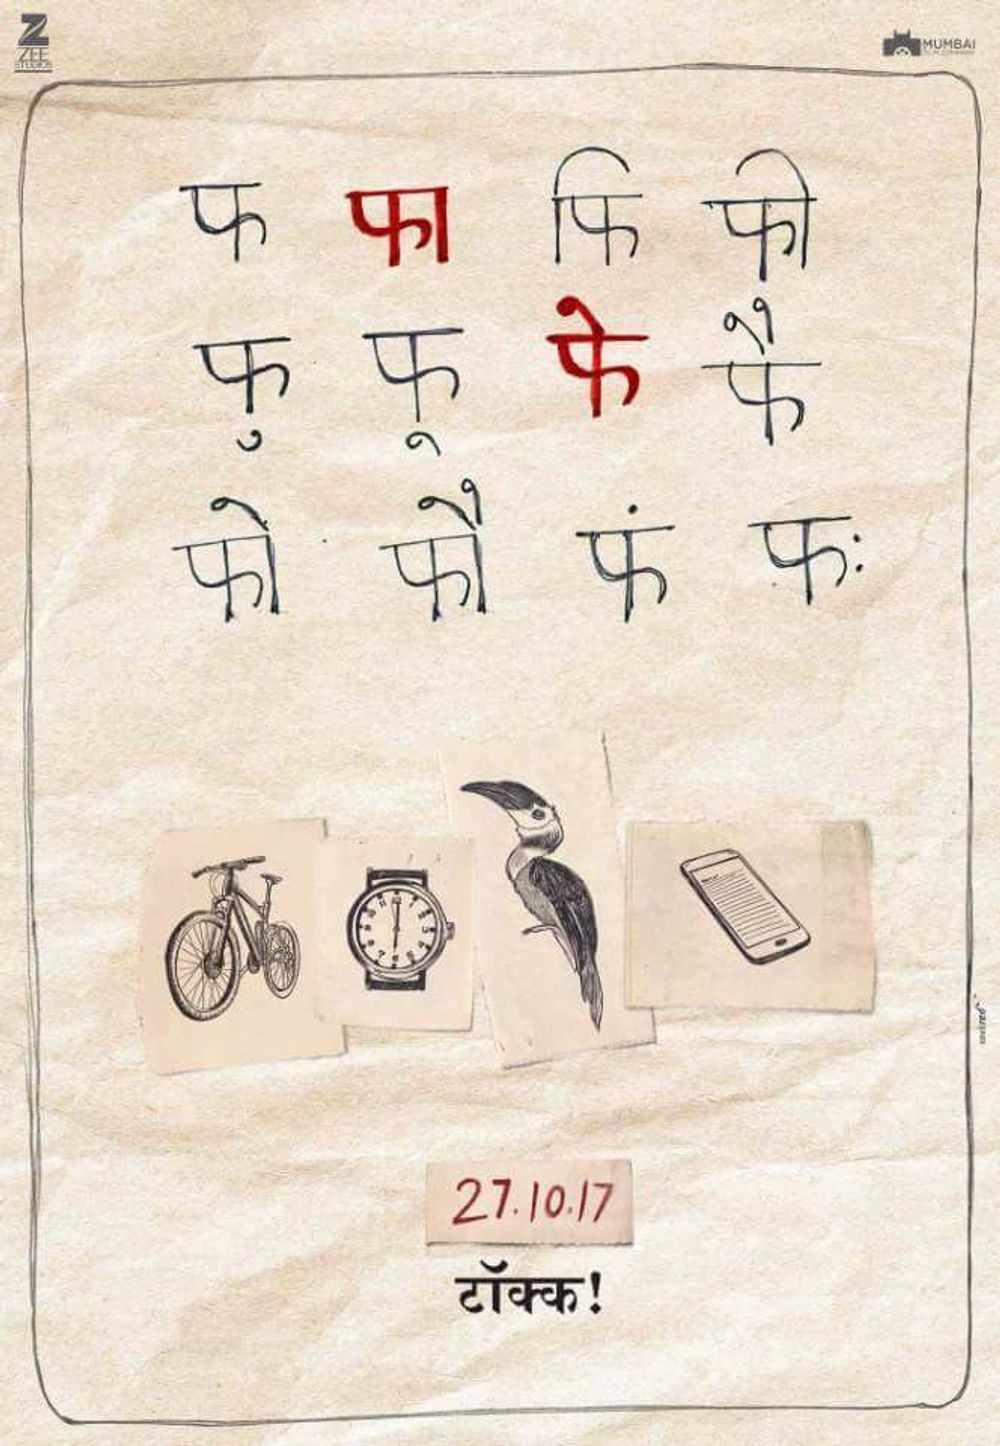 ZEE
STUDIOS
MUMBAI
FILM COMPANY
फ फा फि फी
फु फू फे फै
फो फौ फं फः
27.10.17
टॉक्क!